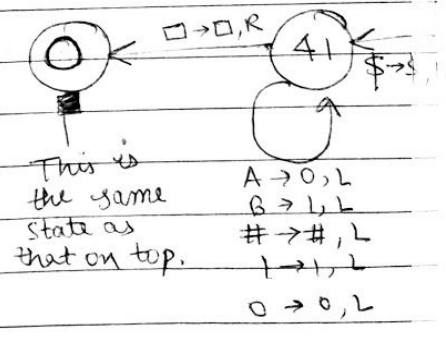 □→□,R
0
41
$→$,
This is
the same
state as
that on top.
A → 0, L
B → 1, L
# → #, L
1 → 1, L
0 → 0, L